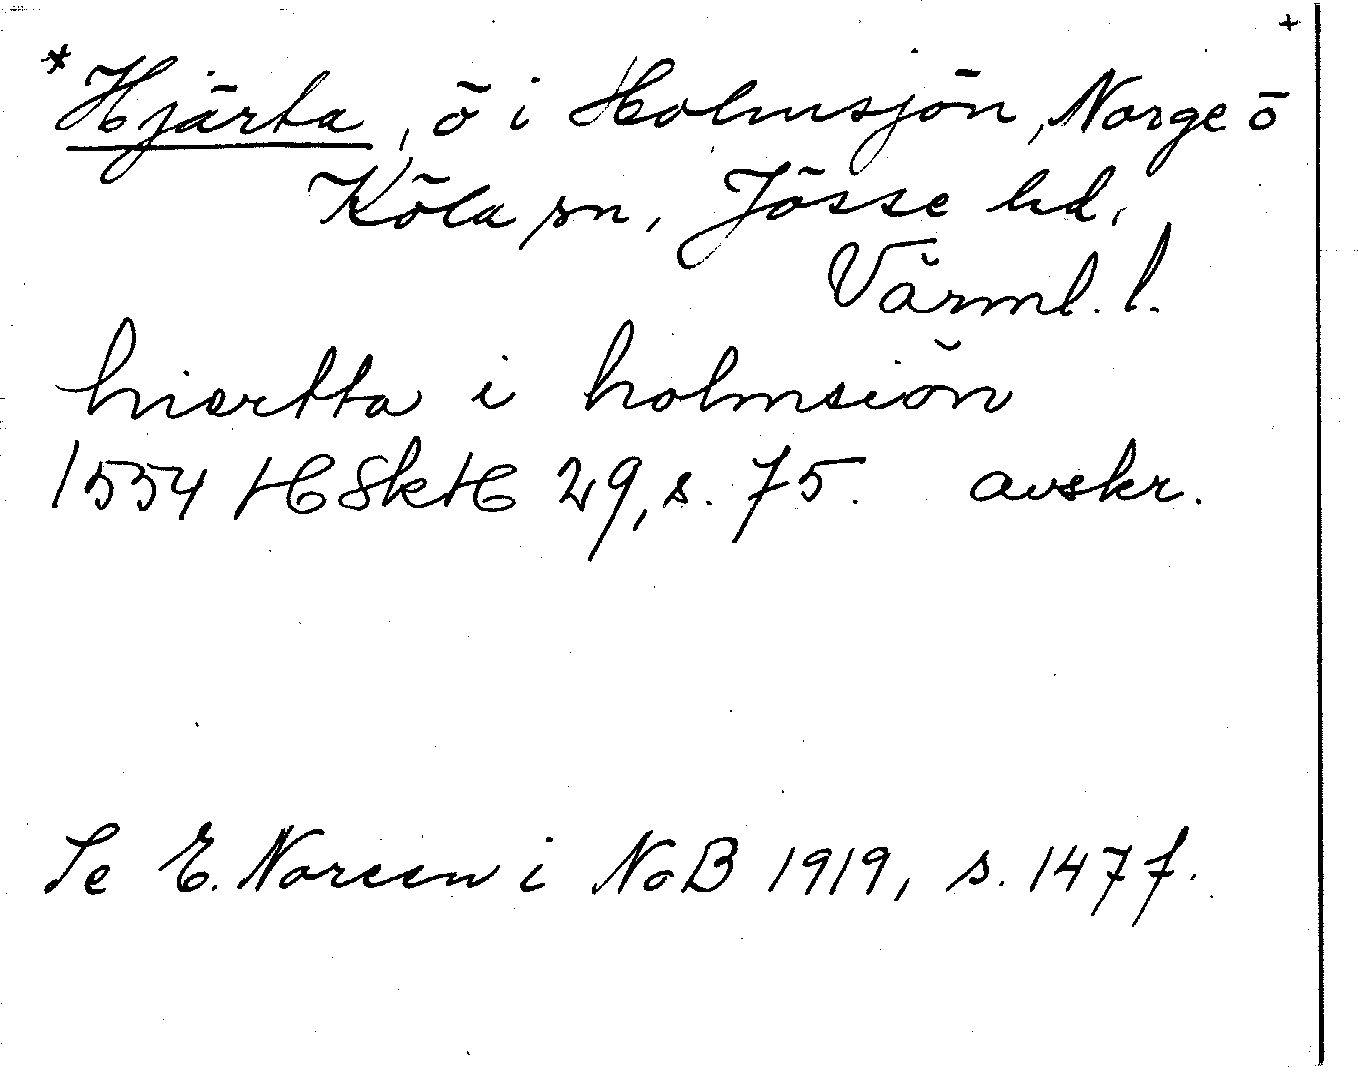 +
*Hjärta, ö i Holmsjön, Norge o
Köla sn, Jösse hd,
Värml. l.
hiertta i holmsiön
1554 HSkH 29, s. 75. avskr.
Se E. Noreen i NoB 1919, s. 147 f.